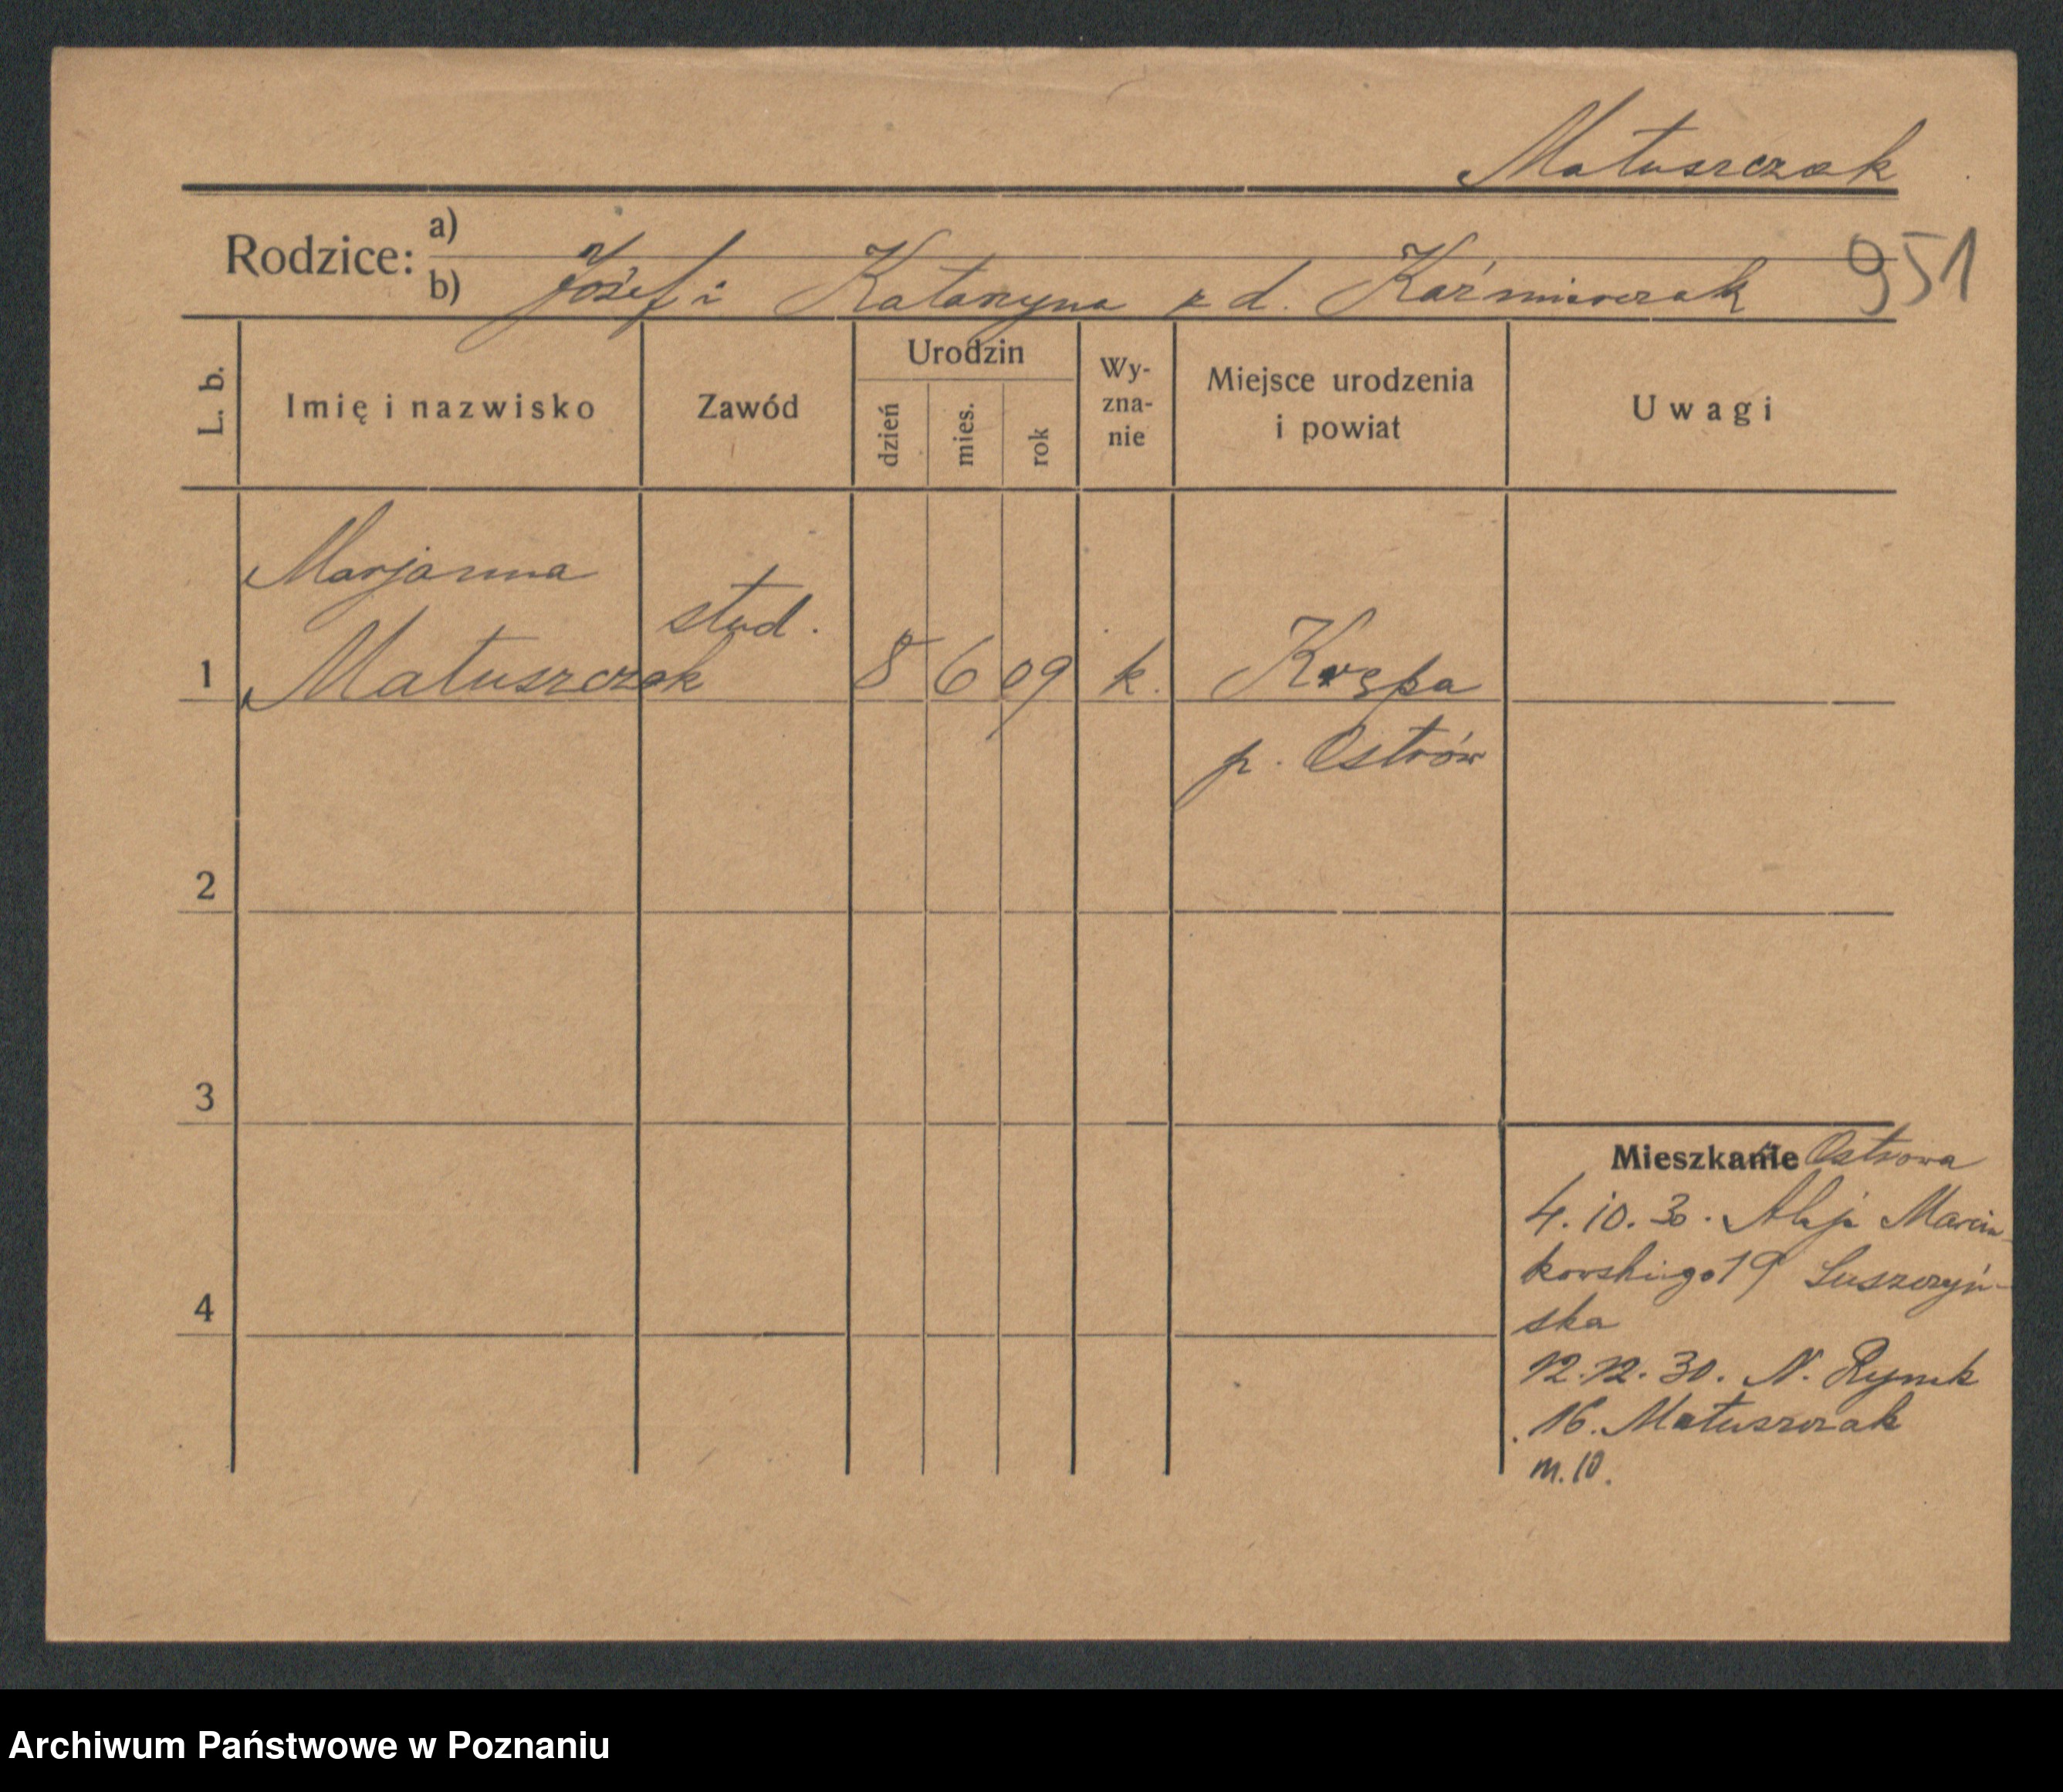 Matuszczak
Rodzice:
a)
b) Józef i Katarzyna z d. Kaźmierczak
951
L. b.
Imię i nazwisko
Zawód
Urodzin
dzień
mies.
rok
Wy-
zna-
nie
Miejsce urodzenia
i powiat
Uwagi
Marjanna
stud.
1 Matuszczak 8 6 09 k. Krępa
p. Ostrów
2
3
Mieszkanie z Ostrowa
4. 10. 30. Aleje Marcin-
kowskiego 19 Luszczyń-
4
ska
12.12.30. N. Rynek
16. Matuszczak
m. 10.
Archiwum Państwowe w Poznaniu